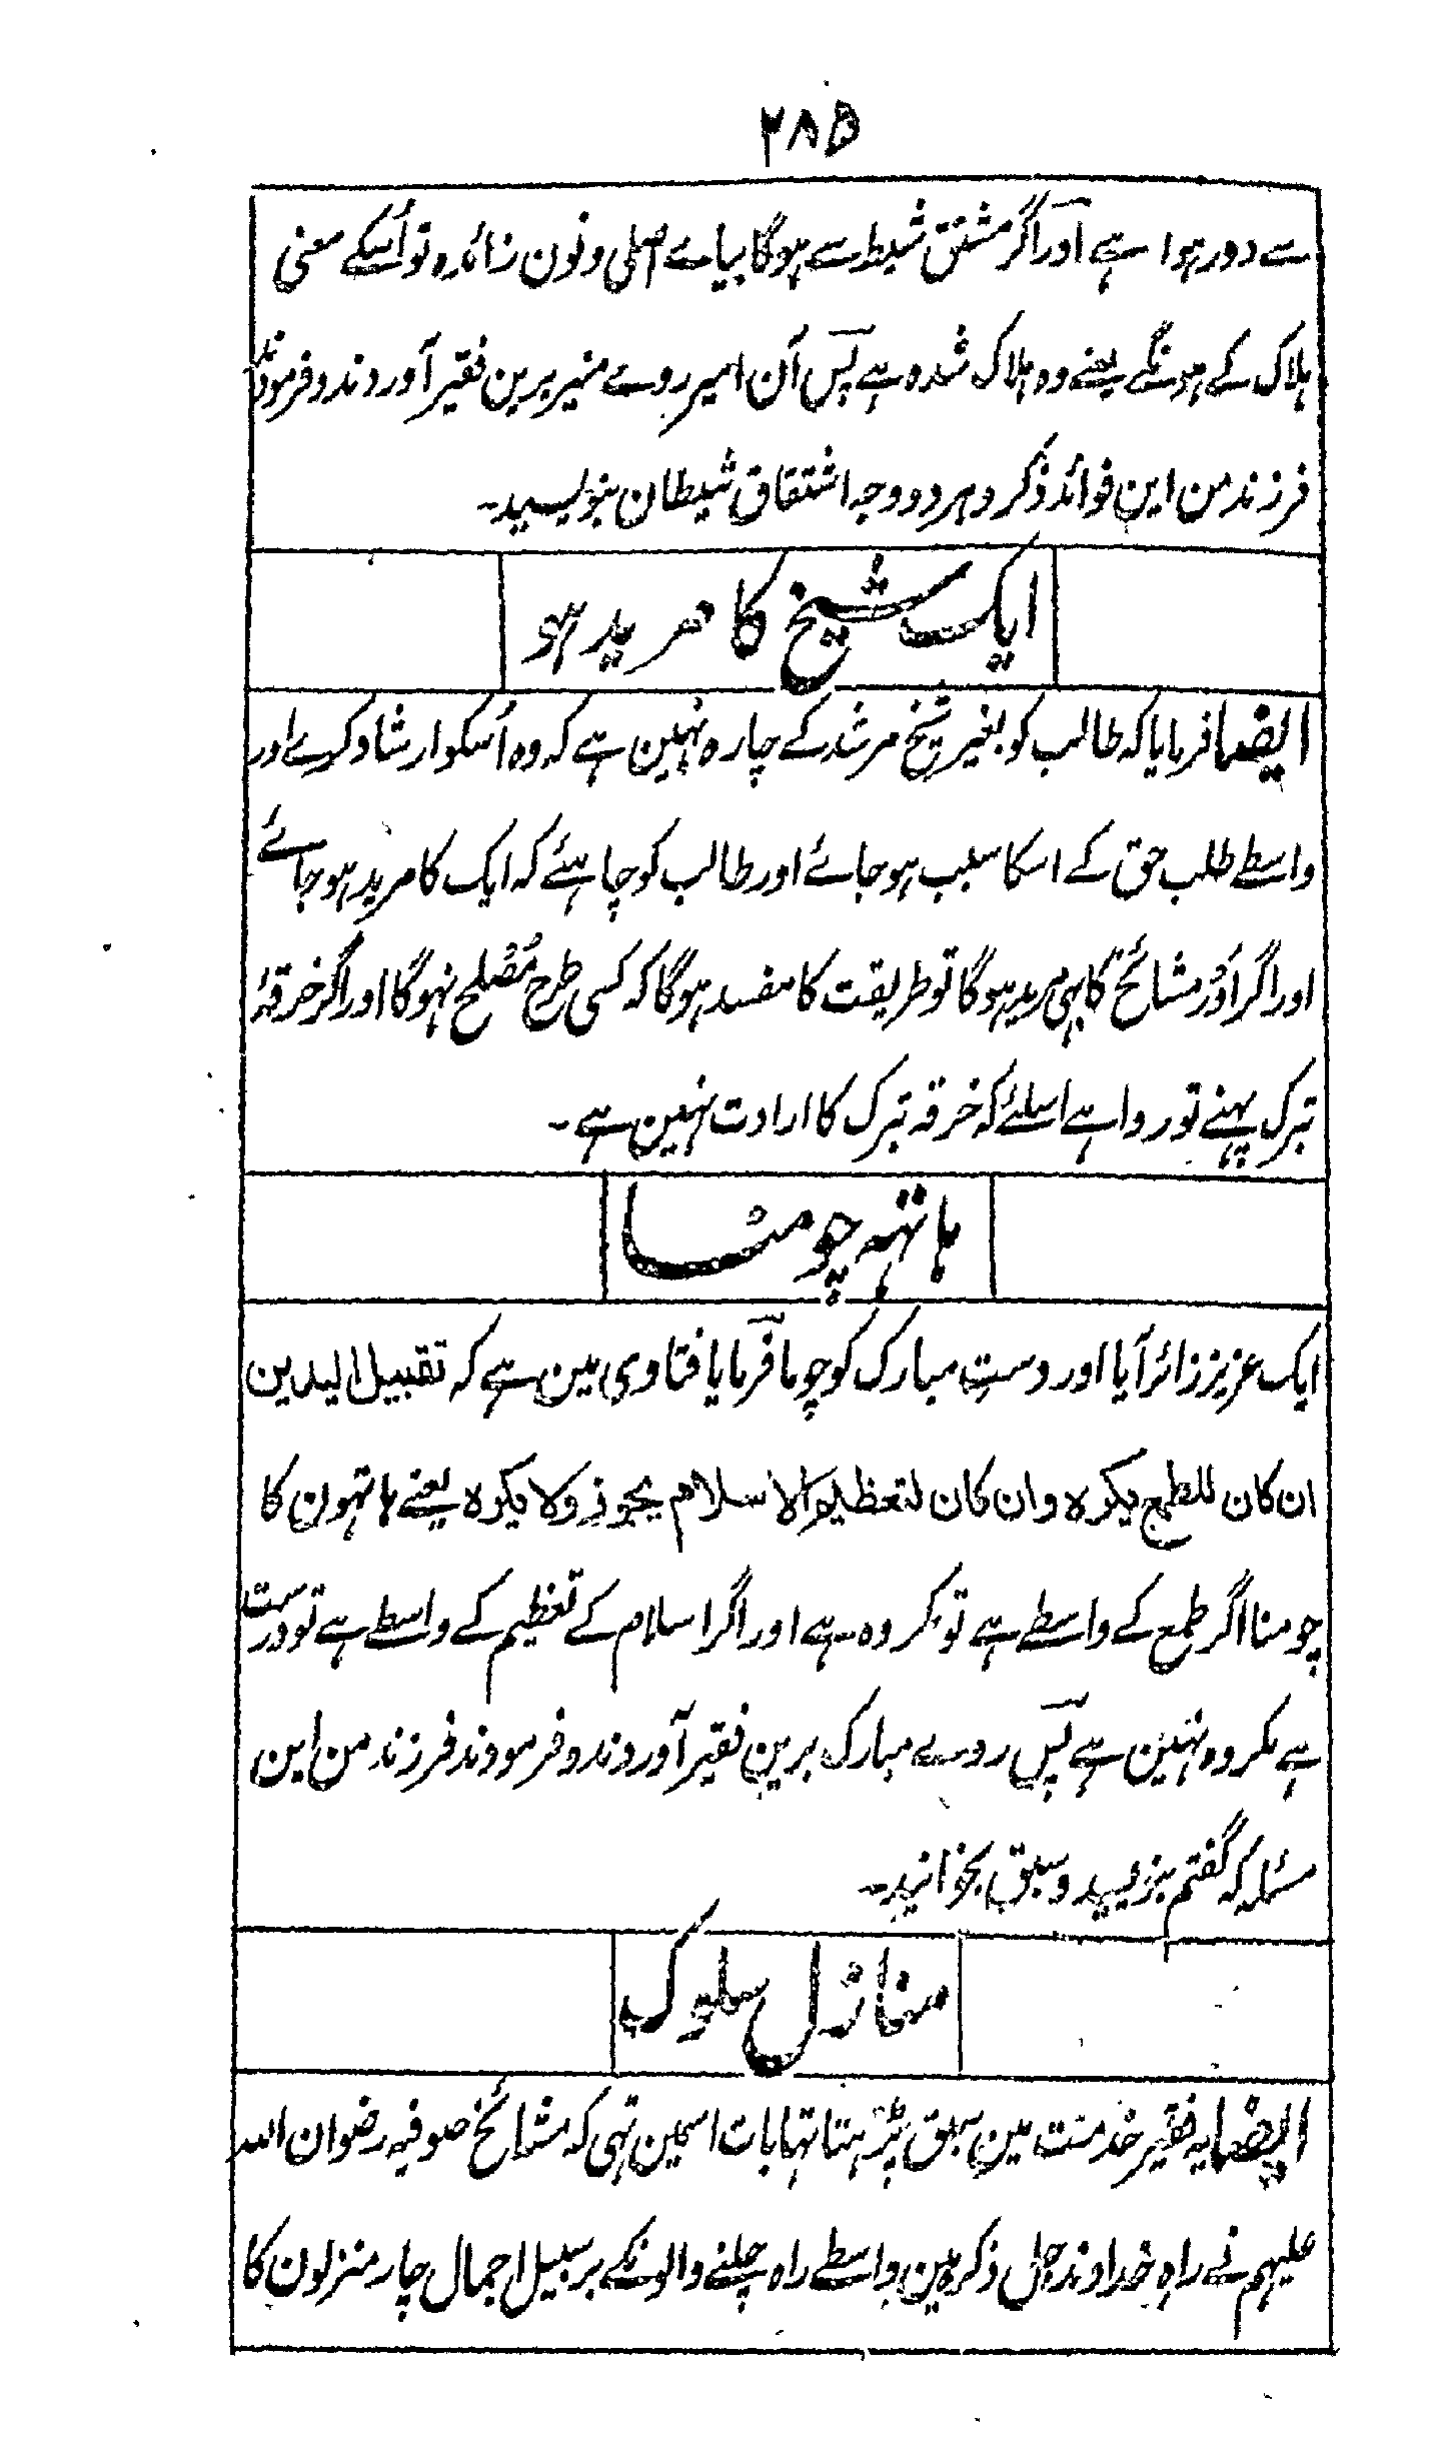 ۲۸۵
سے دور ہوا ہے اور اگر مشتق شیط سے ہوگا بیاے اصلی و نون زائدہ تو اُسکے معنی
ہلاک کے ہونگے یعنے وہ ہلاک شدہ ہے پس آن امیر روے منیر برین فقیر آوردند و فرمودند
فرزند من این فوائد ذکر و ہر دو وجہ اشتقاق شیطان بنویسید۔
ایک شیخ کا مرید ہو
ایضا فرمایا کہ طالب کو بغیر شیخ مرشد کے چارہ نہین ہے کہ وہ اُسکو ارشاد کرے اور
واسطے طلب حق کے اسکا سبب ہو جائے اور طالب کو چاہئے کہ ایک کا مرید ہو جائے
اور اگر اَوْر مشائخ کا بہی مرید ہوگا تو طریقت کا مفسد ہوگا کہ کسی طرح مُفْلح نہوگا اور اگر خرقۂ
تبرک پہنے تو روا ہے اسلئے کہ خرقہ تبرک کا ارادت نہین ہے۔
ہاتہہ چومنا
ایک عزیز زائر آیا اور دست مبارک کو چوما فرمایا فتاوی مین ہے کہ تقبیل الیدین
ان کان للطمع یکرہ و ان کان لتعظیم الاسلام یجوز ولا یکرہ یعنے ہاتہون کا
چومنا اگر طمع کے واسطے ہے تو مکروہ ہے اور اگر اسلام کے تعظیم کے واسطے ہے تو درست
ہے مکروہ نہین ہے پس روے مبارک برین فقیر آوردند و فرمودند فرزند من این
مسئلہ کہ گفتم بنویسید و سبق بخوانید۔
منازل سلوک
ایضا یہ فقیر خدمت مین سبق پڑہتا تہا بات اسمین تہی کہ مشائخ صوفیہ رضوان اللہ
علیہم نے راہ خداوند جل ذکرہ مین واسطے راہ چلنے والونکے بر سبیل اجمال چار منزلون کا